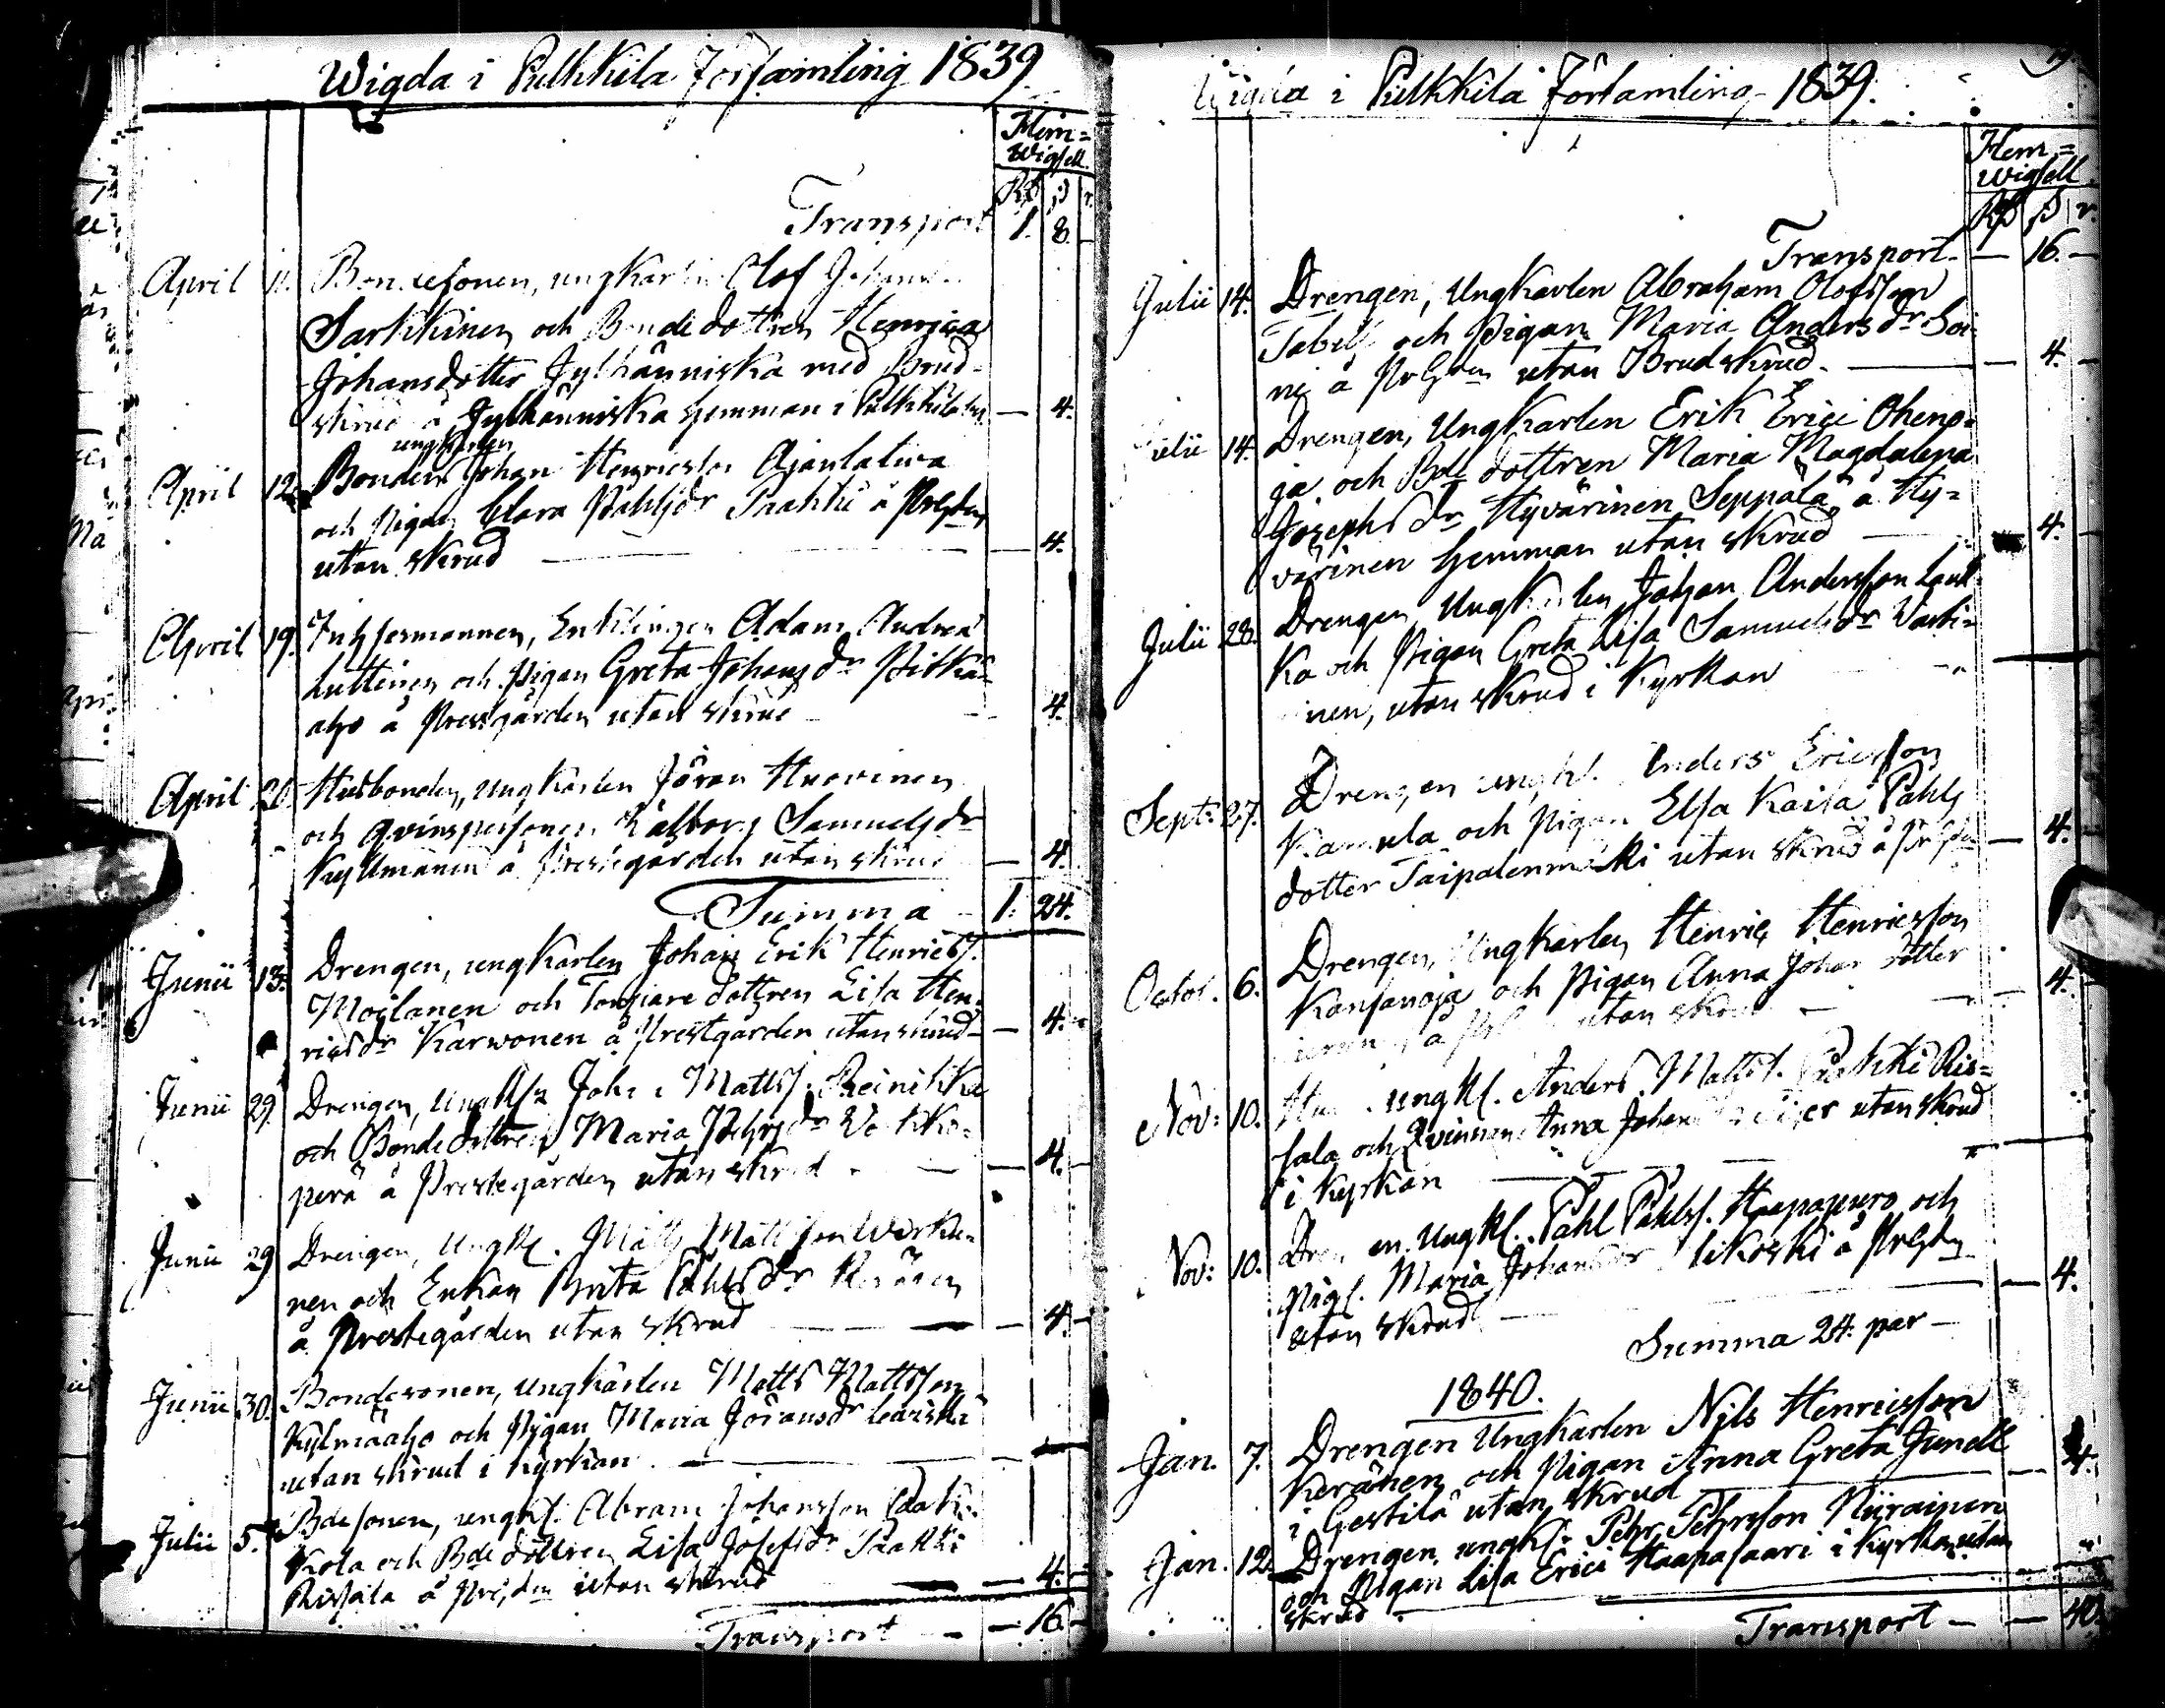 Wigda i Pulkkila Församling 1839.
Hem=
Wigsell.
Transport 1. 8. –
April 11. Bondesonen, ungkarlen Olof Johans
Sarkkinen och Bondedottren Henrica
Johansdotter Jylhänniska med Brud-
skrud å Jylhänniska hemman i Pulkkila by — 4.
ungkarlen
April 12. Bonden Johan Henricsson Ajantativa
och Pigan Clara Påhlsdr Paakki å Prestgdn
utan skrud — 4.
April 19. Inhysermannen, Enklingen Adam Andreæ
Luttinen och Pigan Greta Johansdr Pitkä-
aho å Prestgården utan skrud 4.
April 26. Husbonden, Ungkarlen Jöran Huovinen
och Qvinspersonen Walborg Samuelsdr
Kyllmänen å Prestegården utan skrud — 4.
Summa — 1. 24.
Junii 13. Drengen, ungkarlen Johan Erik Henricss.
Moilanen och Torparedottren Lisa Hen-
ricsdr Karwonen å Prestgården utan skrud — 4. –
Junii 29. Drengen, Ungkln Johan Mattss. Reinikka
och Bondedottren Maria Pehrsdr
perä å Prestegården utan skrud — 4. –
Junii 29 Drengen, Ungkl. Matts Mattsson Werku-
nen och Enkan Brita Påhlsdr Keränen
å Prestegården utan skrud — 4. –
Junii 30. Bondesonen, Ungkarlen Matts Mattsson
Kylmäaho och Pigan Maria Jöransdr
utan skrud i kyrkan —
Julii 5. Bdesonen, ungkl. Abram Johansson
Kola och Bde dottren Lisa Josefsdr Paakki
Rissala å Prgdn utan skrud — 4. –
Transport — — 16. –
Wigda i Pulkkila Församling 1839.
Hem=
wigsell
Transport. — 16. –
Julii 14. Drengen, Ungkarlen Abraham Olofsson
Tabell och Pigan Maria Andersdr Soi-
ni å Prgdn utan Brudskrud. — 4. –
Julii 14. Drengen, Ungkarlen Erik Erici Oheno-
ja och Bde dottren Maria Magdalena
Josephsdr Hyvärinen Seppälä å Hy-
värinen hemman utan skrud — 4. –
Julii 28. Drengen, Ungkarlen Johan Andersson Lauk-
ka och Pigan Greta Lisa Samuelsdr
nen, utan skrud i Kyrkan
Sept. 27. Drengen ungkl. Anders Ericsson
Kamula och Pigan Elsa Kaisa Påhls
dotter Taipalenmäki utan skrud å Prgdn — 4.
Octob. 6. Drengen, Ungkarlen Henric Henricsson
Kansanoja och Pigan Anna Johansdotter
å utan skrud — 4.
Nov: 10. ungkl. Anders Mattss. Paakki Ris-
sala och Qvinnan Anna Johansdr utan skrud
i kyrkan —
Nov: 10. Drengen, Ungkl. Påhl Påhlss. Haapapuro och
Pig. Maria Johansdr å Prgdn
utan skrud — 4.
Summa 24. par –
1840.
Jan. 7. Drengen Ungkarlen Nils Henricsson
Keränen och Pigan Anna Greta Jundell
i Gestilä utan skrud — 4.
Jan. 12. Drengen, ungkl. Pehr Pehrsson Niirainen
och Pigan Lisa Erici Haapasaari i Kyrkan utan
skrud
Transport — — 40.